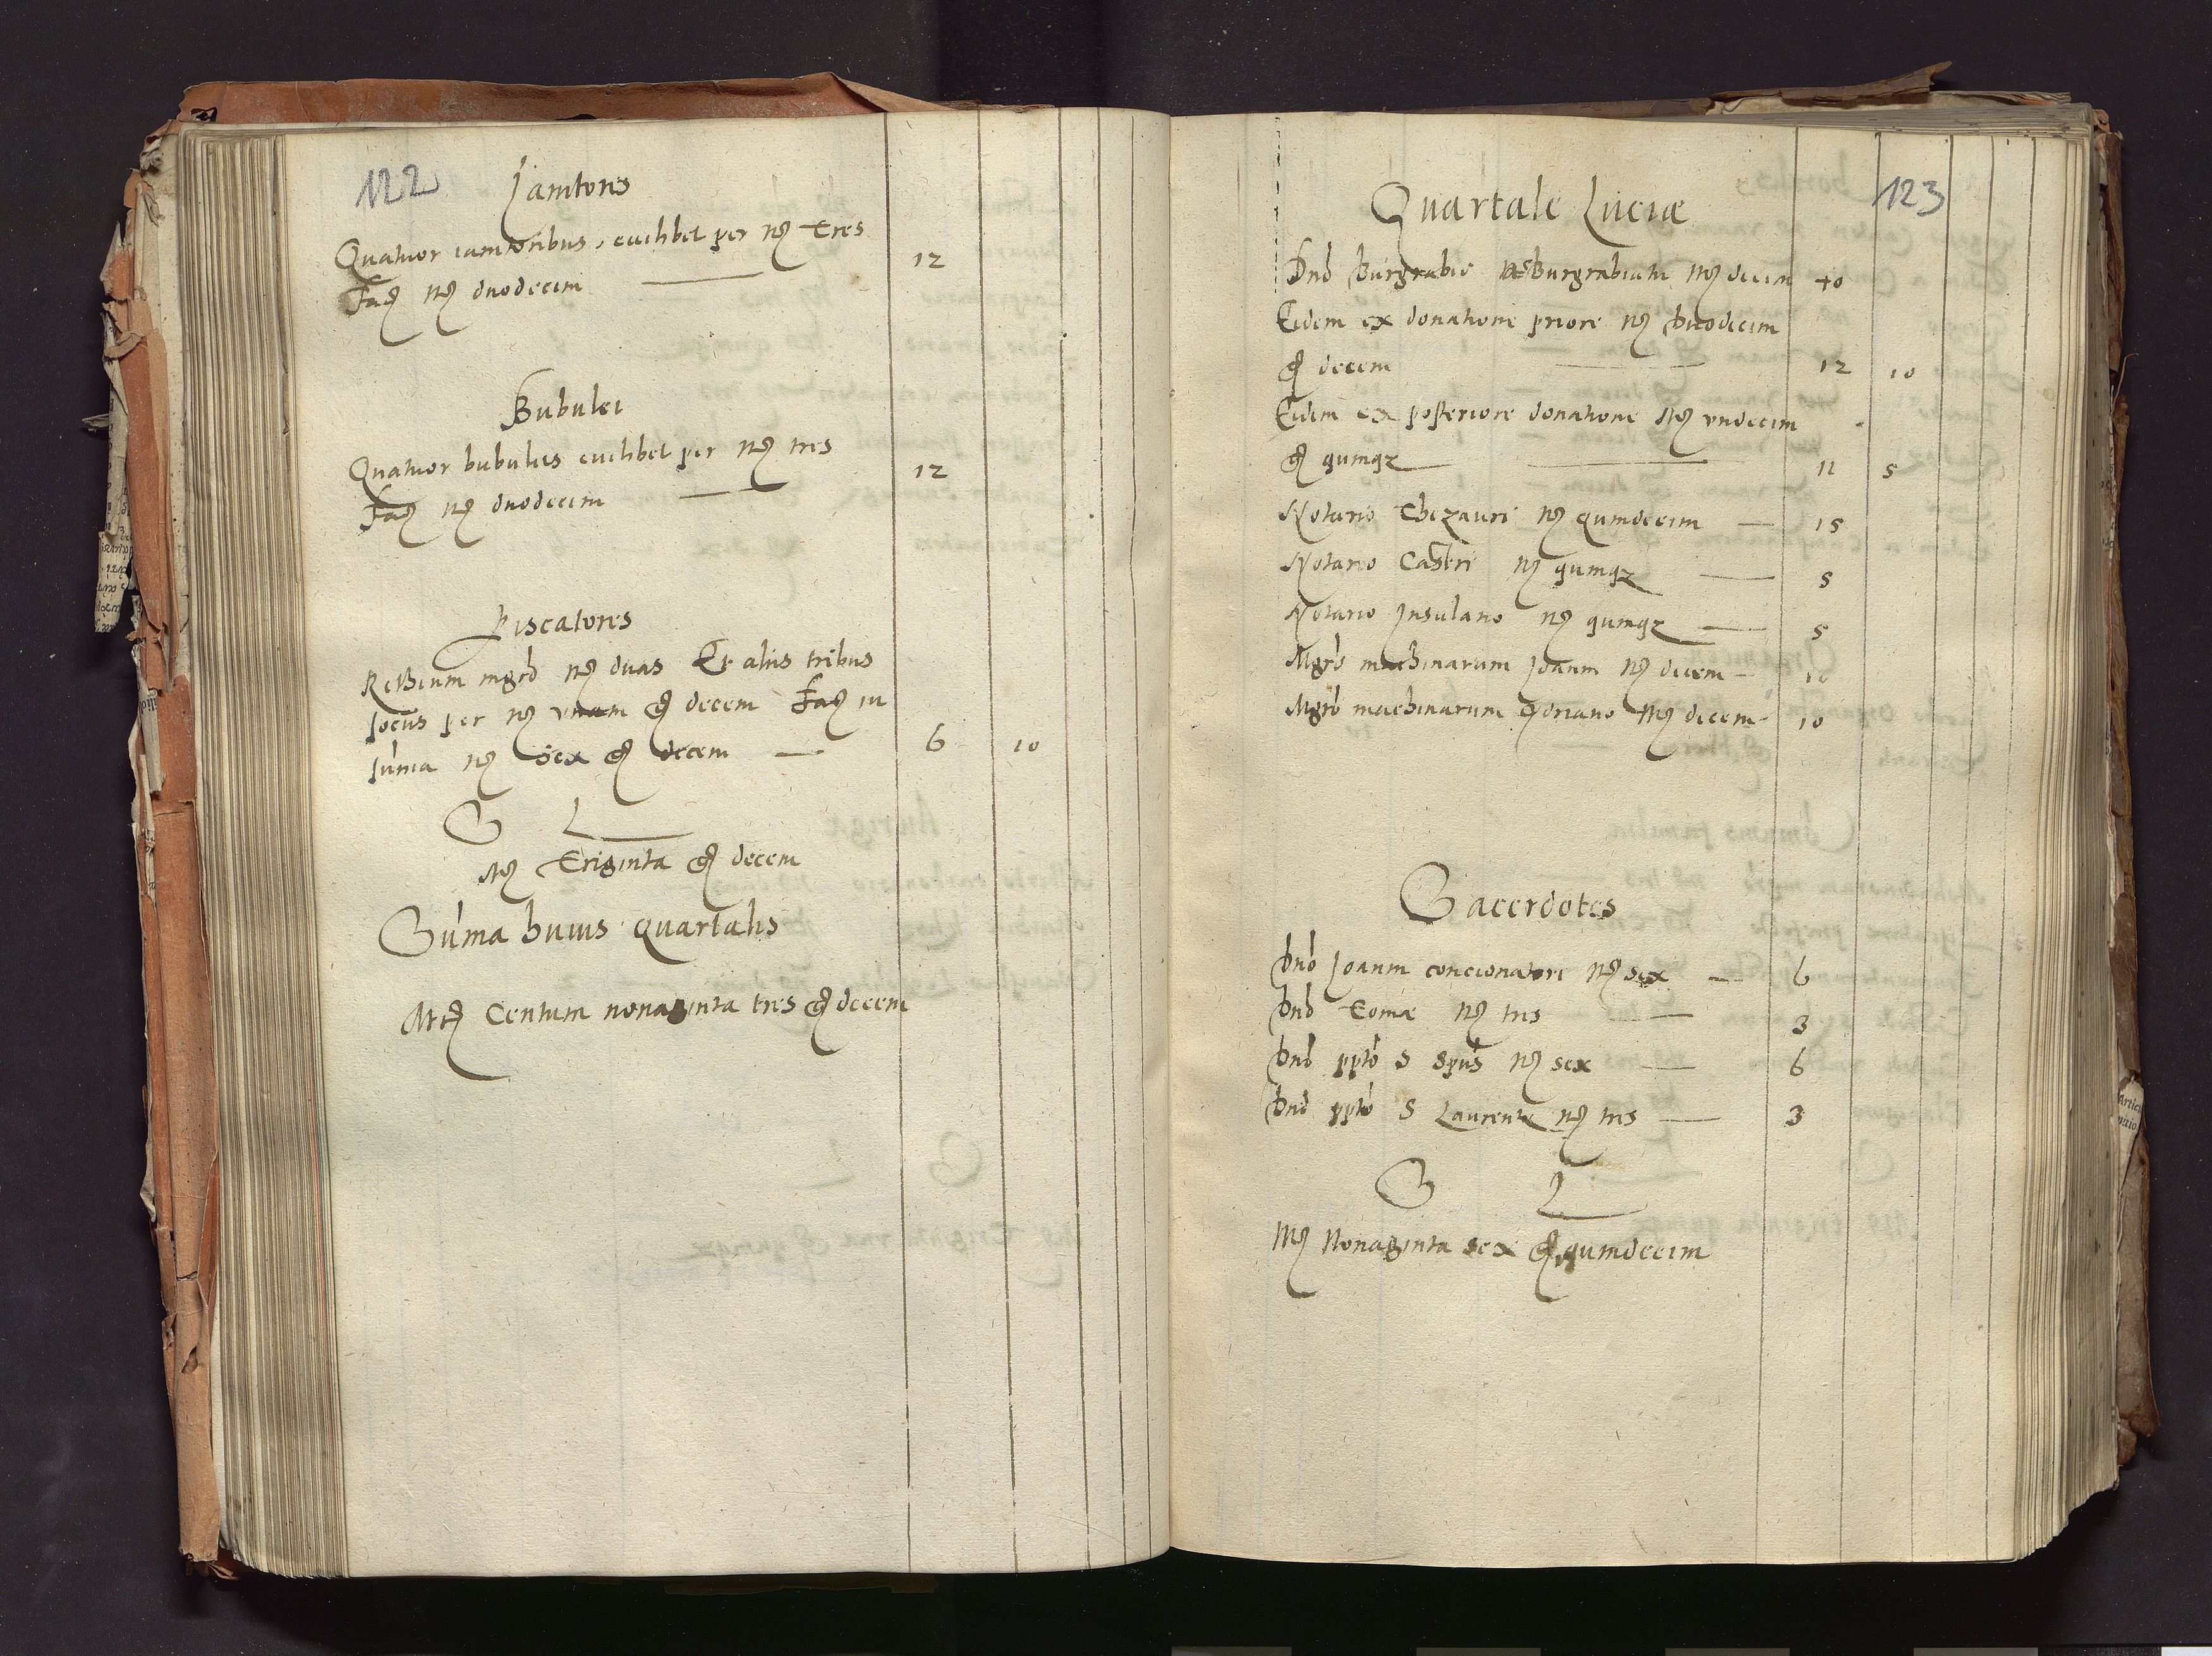 122
Janitores
Quatuor ianitoribus, cuilibet per mrc tres
Facit mrc duodecim — 12
Bubulci
Quatuor bubulcis cuilibet per mrc tres
Facit mrc duodecim — 12
Piscatores
mgro mrc duas Et aliis tribus
sociis per mrc unam gr decem Facit in
suma mrc sex gr decem — 6 10
S L
Mrc Triginta gr decem
Suma huius quartalis
Mrc Centum nonaginta tres gr decem
123
Quartale Luciæ
Dno Burgrabio Burgrabiatu mrc decem 10
Eidem ex donatione priore mrc duodecim
gr decem — 12 10
Eidem ex posteriore donatione mrc undecim
gr quinqz — 11 5
Notario Thezauri mrc quindecim — 15
Notario Castri mrc quinqz — 5
Notario Insulano mrc quinqz — 5
Mgro machinarum Joanni mrc decem — 10
Mgro machinarum mrc decem — 10
Sacerdotes
Dno Joanni concionatori mrc sex — 6
Dno Tomæ mrc tres — 3
Dno ppto S Spus mrc sex — 6
Dno ppto S Laurentz mrc tres — 3
S L
Mrc Nonaginta sex gr quindecim